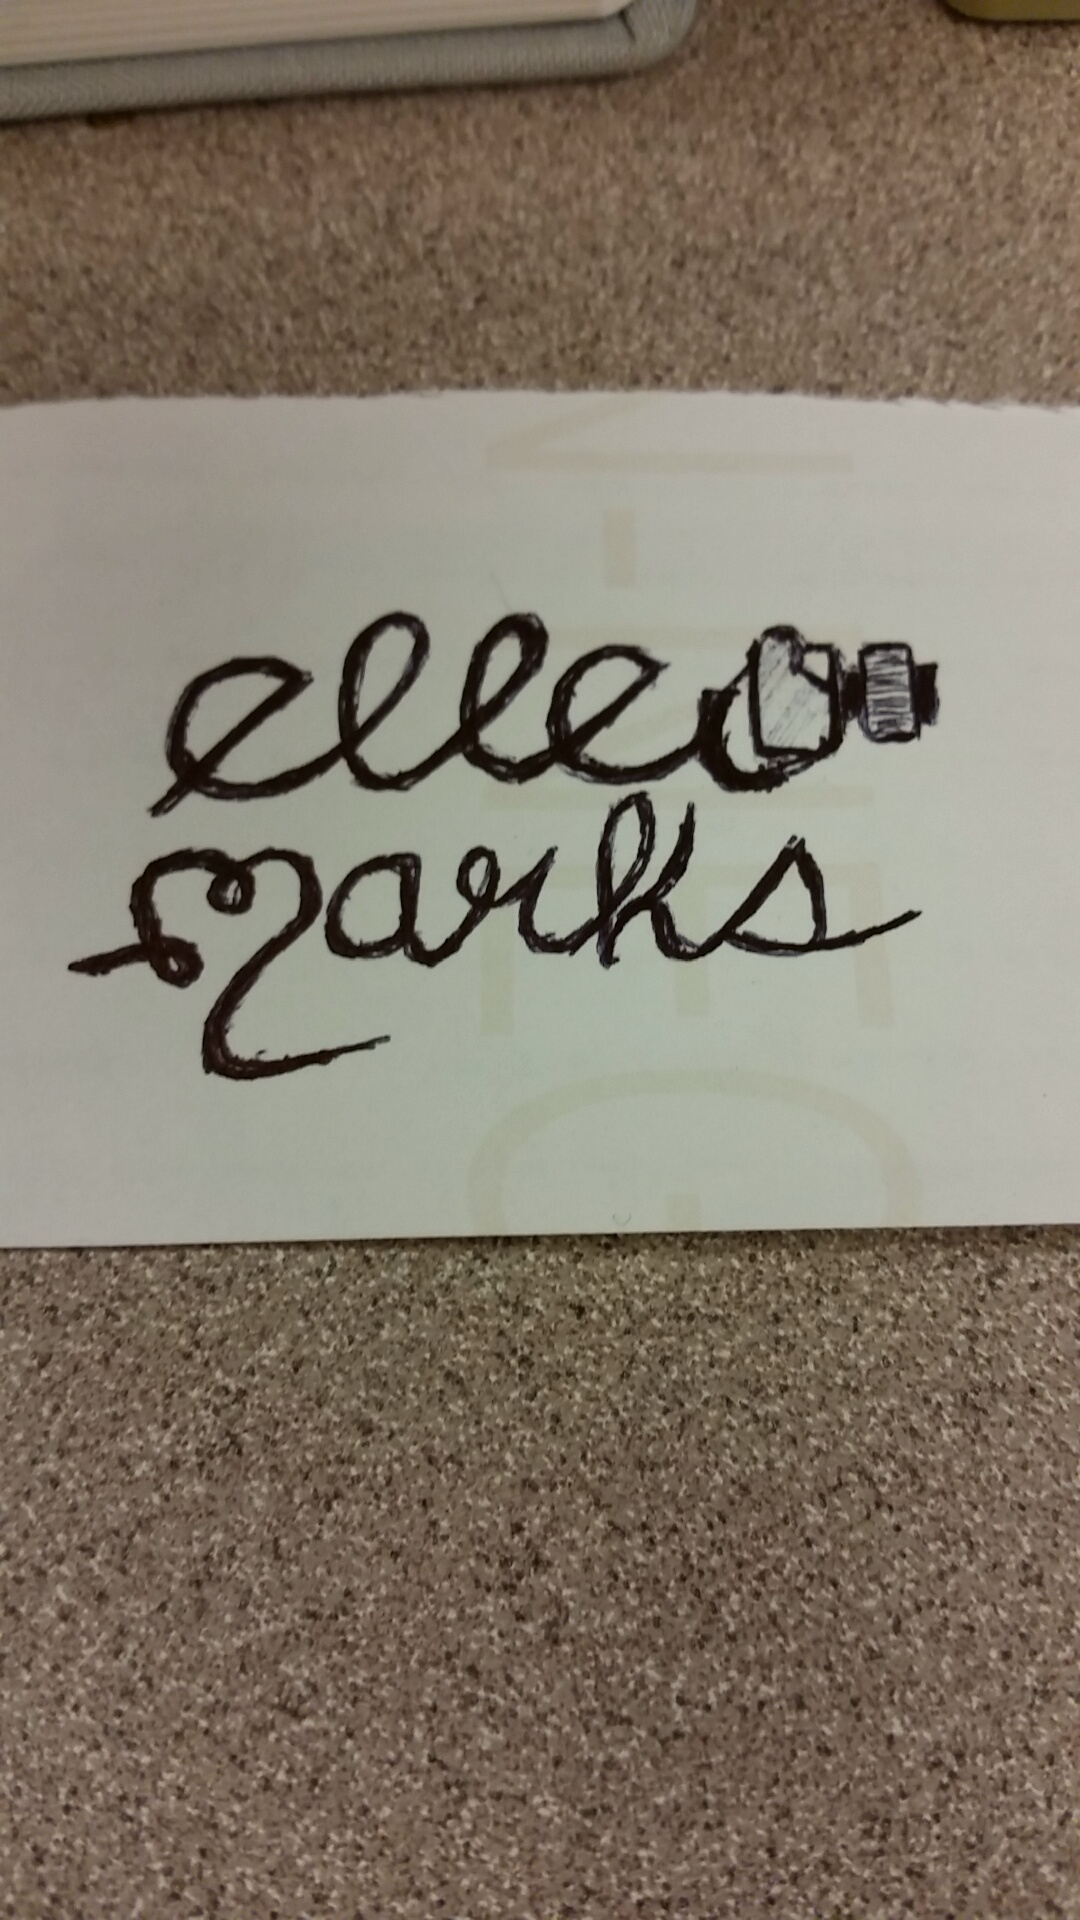 elle
Marks